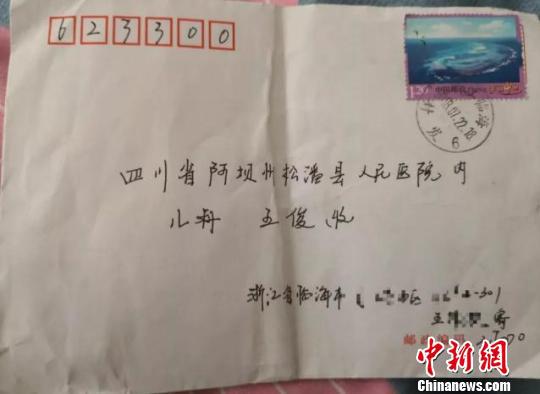 623300
中国邮政 China
07.22.18
6
四川省阿坝州松潘县人民医院内
儿科 王俊收
浙江省临海市 区 -301
王 寄
邮政编码
中新网
Chinanews.com